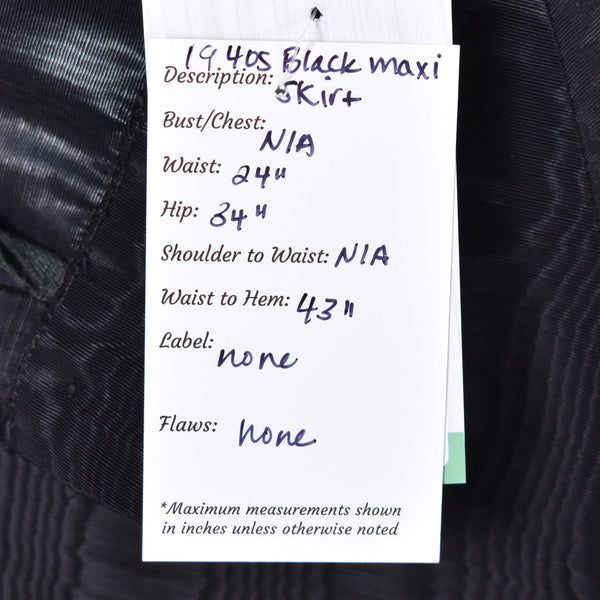 Description: 1940s Black maxi
Skirt
Bust/Chest:
N/A
Waist: 24"
Hip: 34"
Shoulder to Waist: N/A
Waist to Hem: 43"
Label: none
Flaws: none
*Maximum measurements shown
in inches unless otherwise noted